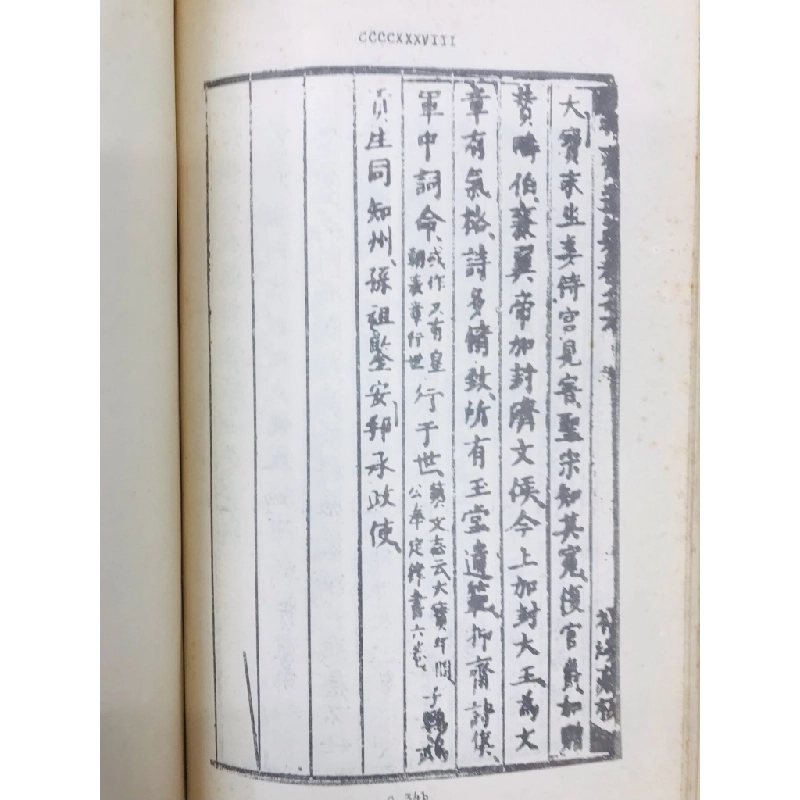 CCCCXXXVIII
大寶末坐妾侍宮見害、聖宗知其冤、復官爵加贈
贊 伯、襄翼帝加封濟文侯、今上加封大王、為文
章有氣格、詩多備致、所有玉堂遺範、抑齋詩集、
軍中詞命、或作又有皇
朝表章行世
行于世、藝文志云大寶年間
公奉定律書六卷
子
貟生同知州、孫祖鑒安邦承政使、
34b